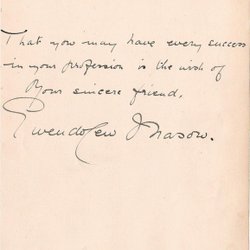 That you may have every success
in your profession is the wish of
Your sincere friend.
Gwendolen